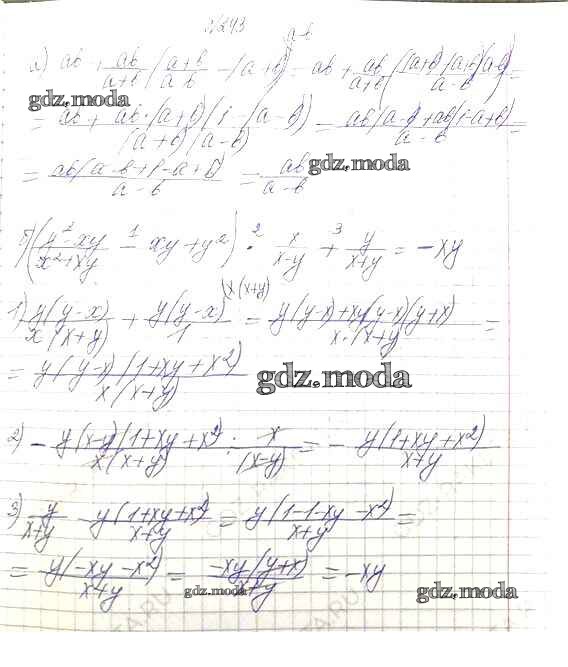 №243
a-b
а) ab + ab/(a+b) ((a+b)/(a-b) - (a+b)) = ab + ab/(a+b) ((a+b) - (a+b)(a-b))/(a-b) =
gdz.moda
= ab + ab·(a+b)(1 - (a-b))/((a+b)(a-b)) = (ab(a-b)+ab(1-a+b))/(a-b) =
= ab(a-b+1-a+b)/(a-b) = ab/(a-b)
gdz.moda
б) ((y²-xy)/(x²+xy) - xy+y²) · x/(x-y) + y/(x+y) = -xy
1 2 3
(x(x+y)
1) y(y-x)/(x(x+y)) + y(y-x)/1 = (y(y-x)+xy(y-x)(y+x))/(x·(x+y)) =
= y(y-x)(1+xy+x²)/(x(x+y))
gdz.moda
2) - y(x-y)(1+xy+x²)/(x(x+y)) : x/(x-y) = - y(1+xy+x²)/(x+y)
3) y/(x+y) - y(1+xy+x²)/(x+y) = y(1-1-xy-x²)/(x+y) =
= y(-xy-x²)/(x+y) = -xy(y+x)/(x+y) = -xy
gdz.moda
gdz.moda